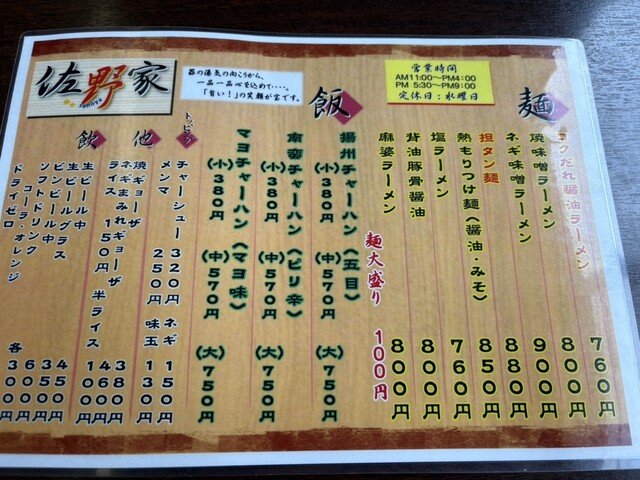 麺
コクだれ醤油ラーメン 760円
焼味噌ラーメン 800円
ネギ味噌ラーメン 900円
担タン麺 880円
熱もりつけ麺（醤油・みそ） 850円
塩ラーメン 760円
背油豚骨醤油 800円
麻婆ラーメン 800円
麺大盛り 100円
営業時間
AM11:00〜PM4:00
PM 5:30〜PM9:00
定休日：水曜日
飯
揚州チャーハン（五目）
（小）380円 （中）570円 （大）750円
南蛮チャーハン（ピリ辛）
（小）380円 （中）570円 （大）750円
マヨチャーハン（マヨ味）
（小）380円 （中）570円 （大）750円
呂の湯気の向こうから、
一品一品心を込めて…。
「旨い！」の笑顔が宝です。
トッピング
チャーシュー 320円 ネギ 150円
メンマ 250円 味玉 130円
他
焼ギョーザ 380円
ネギまみれギョーザ 460円
ライス 150円 半ライス 100円
飲
生ビール中 450円
生ビールグラス 350円
ビンビール中 600円
ソフトドリンク 各300円
コーラ・オレンジ
ドライゼロ
佐野家
sanoya